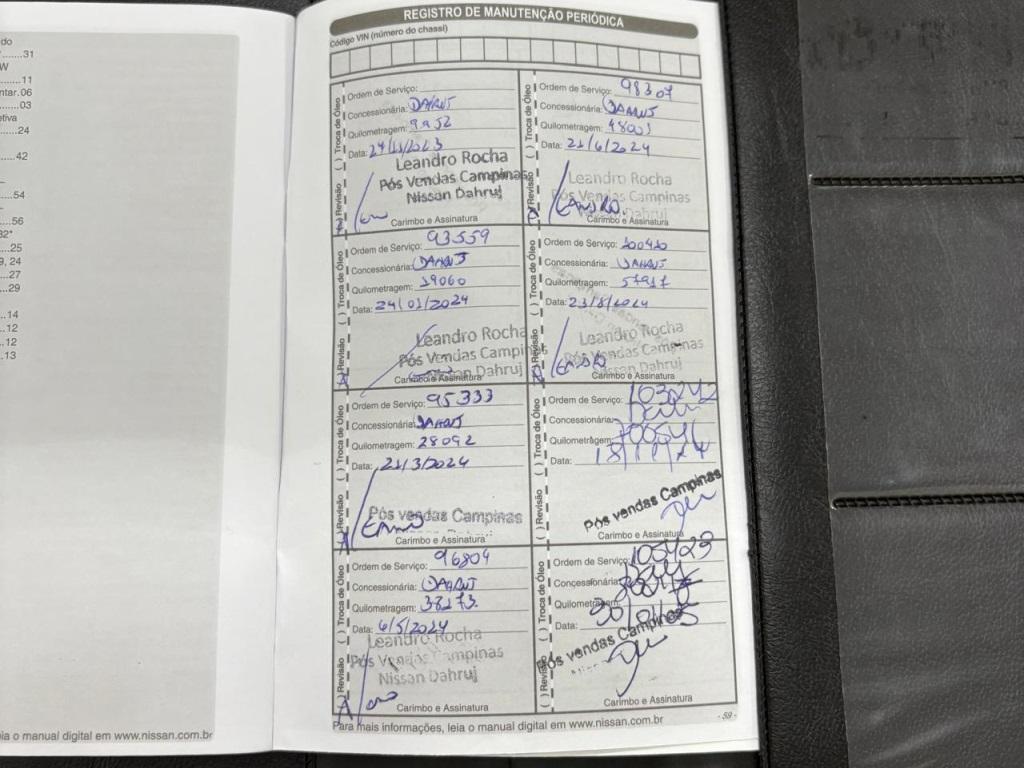 do
31
W
11
ntar. 06
03
etiva
24
42
54
56
32"
25
9, 24
27
29
14
12
12
13
eia o manual digital em www.nissan.com.br
REGISTRO DE MANUTENÇÃO PERIÓDICA
Código VIN (número do chassi)
( ) Revisão ( ) Troca de Óleo
Ordem de Serviço:
Concessionária: DAHRUJ
Quilometragem: 9952
Data: 24/11/2023
Leandro Rocha
Pós Vendas Campinas
Nissan Dahruj
Carimbo e Assinatura
( ) Revisão ( ) Troca de Óleo
Ordem de Serviço: 93559
Concessionária: DAHRUJ
Quilometragem: 19060
Data: 24/01/2024
Leandro Rocha
Pós Vendas Campinas
Nissan Dahruj
Carimbo e Assinatura
( ) Revisão ( ) Troca de Óleo
Ordem de Serviço: 95333
Concessionária: DAHRUJ
Quilometragem: 28092
Data: 21/3/2024
Pós vendas Campinas
Carimbo e Assinatura
( ) Revisão ( ) Troca de Óleo
Ordem de Serviço: 96804
Concessionária: DAHRUJ
Quilometragem: 38173
Data: 6/5/2024
Leandro Rocha
Pós Vendas Campinas
Nissan Dahruj
Carimbo e Assinatura
( ) Revisão ( ) Troca de Óleo
Ordem de Serviço: 98307
Concessionária: DAHRUJ
Quilometragem: 48001
Data: 21/6/2024
Leandro Rocha
Pós Vendas Campinas
Nissan Dahruj
Carimbo e Assinatura
( ) Revisão ( ) Troca de Óleo
Ordem de Serviço: 100420
Concessionária: DAHRUJ
Quilometragem: 57917
Data: 23/8/2024
Leandro Rocha
Pós Vendas Campinas
Nissan Dahruj
Carimbo e Assinatura
( ) Revisão ( ) Troca de Óleo
Ordem de Serviço: 103242
Concessionária:
Quilometragem:
Data: 18/11/24
Pós vendas Campinas
Carimbo e Assinatura
( ) Revisão ( ) Troca de Óleo
Ordem de Serviço: 105423
Concessionária:
Quilometragem:
Data: 30/01/25
Pós vendas Campinas
Carimbo e Assinatura
Para mais informações, leia o manual digital em www.nissan.com.br
- 59 -